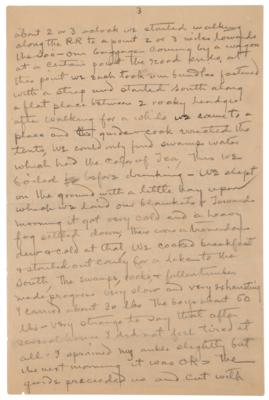 3
about 2 or 3 oclock we started walking
along the RR to a point 2 or 3 miles towards
the Soo - our baggage coming by a wagon
at a certain point the road ends, at
this point we each took our bundles fastened
with a strap and started south along
a flat place between 2 rocky hedges
after walking for a while we came to a
place and the guide - cook erected the
tents we could only find swamp water
which had the color of Tea, This we
boiled before drinking - we slept
on the ground with a little hay upon
which we laid our blankets & towards
morning it got very cold and a heavy
fog settled down, There was a tremendous
dew & cold at that We cooked breakfast
& started out early for a lake to the
South. The swamps, rocks & fallen timber
made progress very slow and very exhausting
I carried about 30 lbs The boys about 60
lbs - very strange to say that after
several hours I did not feel tired at
all - I sprained my ankle slightly but
the next morning it was OK - The
guide preceded us and cut with